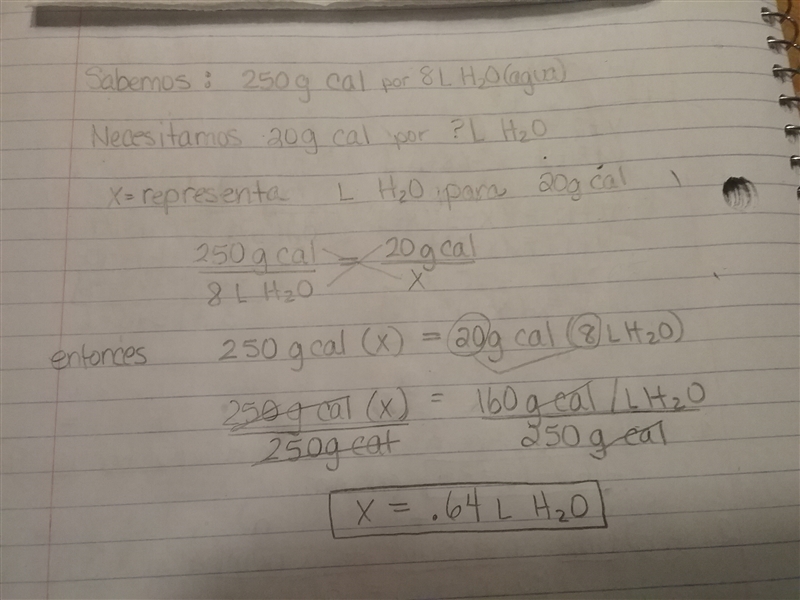 Sabemos: 250g cal por 8L H₂O(agua)
Necesitamos 20g cal por ?L H₂O
x=representa L H₂O para 20g cal
250g cal = 20g cal
8 L H₂O x
entonces 250 g cal (x) = 20g cal (8 L H₂O)
250 g cal (x) = 160 g cal / L H₂O
250g cal 250 g cal
x = .64 L H₂O